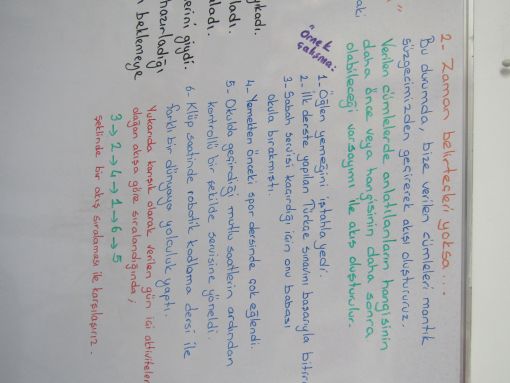 2- Zaman belirteçleri yoksa...
Bu durumda, bize verilen cümleleri mantık
süzgecimizden geçirerek akışı oluştururuz.
Verilen cümlelerde anlatılanların hangisinin
daha önce veya hangisinin daha sonra
olabileceği varsayımı ile akış oluşturulur.
Örnek
çalışma:
1- Öğlen yemeğini iştahla yedi.
2- İlk derste yapılan Türkçe sınavını başarıyla bitirdi
3- Sabah servisi kaçırdığı için onu babası
okula bırakmıştı.
4- Yemekten önceki spor dersinde çok eğlendi.
5- Okulda geçirdiği mutlu saatlerin ardından
kontrollü bir şekilde servisine yöneldi.
6- Klüp saatinde robotik kodlama dersi ile
farklı bir dünyaya yolculuk yaptı.
Yukarıda karışık olarak verilen gün içi aktiviteler
doğan akışa göre sıralandığında;
3→2→4→1→6→5
şeklinde bir akış sıralaması ile karşılaşırız.
yıkadı.
ladı.
aladı.
erini giydi.
hazırladığı
n beklemeye